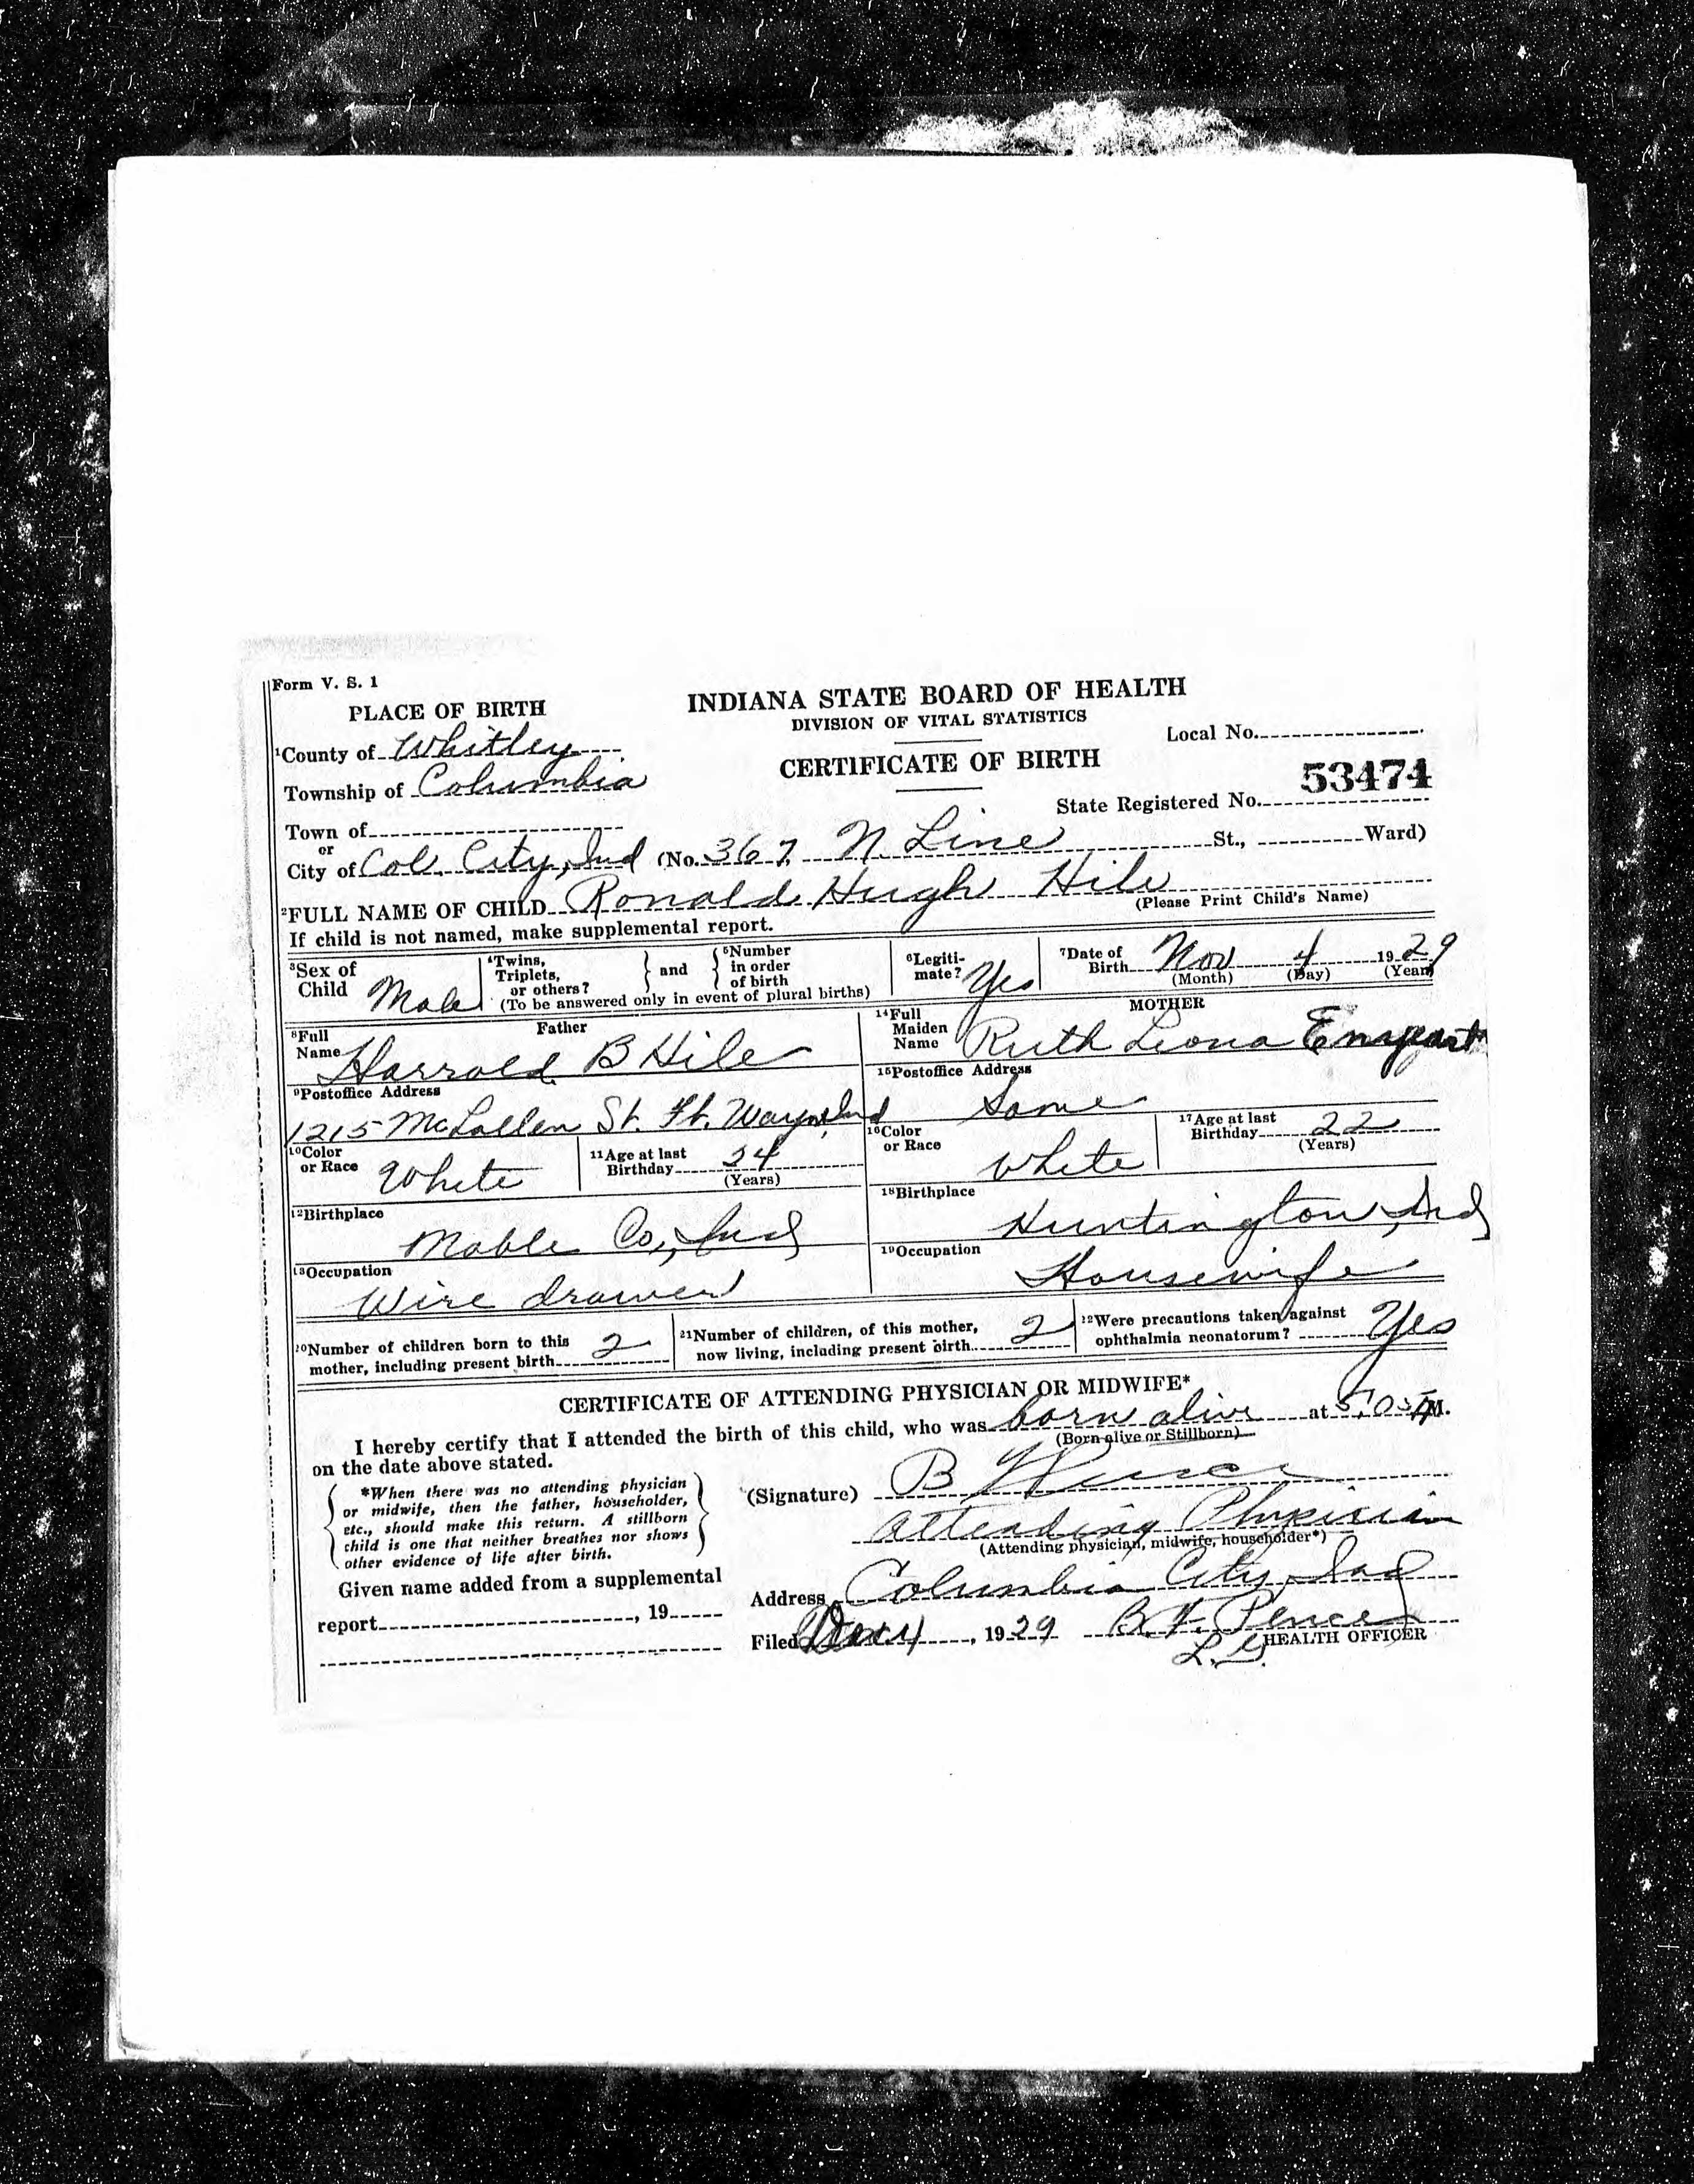 Form V. S. 1
INDIANA STATE BOARD OF HEALTH
PLACE OF BIRTH
DIVISION OF VITAL STATISTICS
1County of Whitley
Local No.
CERTIFICATE OF BIRTH
Township of Columbia
53474
State Registered No.
Town of
or
City of Col. City, Ind (No. 367 N. Line St., Ward)
2FULL NAME OF CHILD Ronald Hugh Hile
(Please Print Child's Name)
If child is not named, make supplemental report.
3Sex of Child Male
4Twins, Triplets, or others? and 5Number in order of birth
(To be answered only in event of plural births)
6Legitimate? Yes
7Date of Birth Nov 4 1929
(Month) (Day) (Year)
Father
8Full Name Harrold B Hile
9Postoffice Address
1215 McLallen St. Ft. Wayne Ind
10Color or Race White
11Age at last Birthday 24
(Years)
12Birthplace
Noble Co, Ind
13Occupation
Wire drawer
MOTHER
14Full Maiden Name Ruth Leona Enyeart
15Postoffice Address
Same
16Color or Race White
17Age at last Birthday 22
(Years)
18Birthplace
Huntington, Ind
19Occupation
Housewife
20Number of children born to this
mother, including present birth 2
21Number of children, of this mother,
now living, including present birth 2
22Were precautions taken against
ophthalmia neonatorum? Yes
CERTIFICATE OF ATTENDING PHYSICIAN OR MIDWIFE*
I hereby certify that I attended the birth of this child, who was born alive at 5:05 A M.
(Born alive or Stillborn)
on the date above stated.
*When there was no attending physician
or midwife, then the father, householder,
etc., should make this return. A stillborn
child is one that neither breathes nor shows
other evidence of life after birth.
(Signature) B
Attending Physician
(Attending physician, midwife, householder*)
Given name added from a supplemental
report , 19
Address Columbia City, Ind
Filed 4, 1929 B. F. Pence
HEALTH OFFICER
L. G.